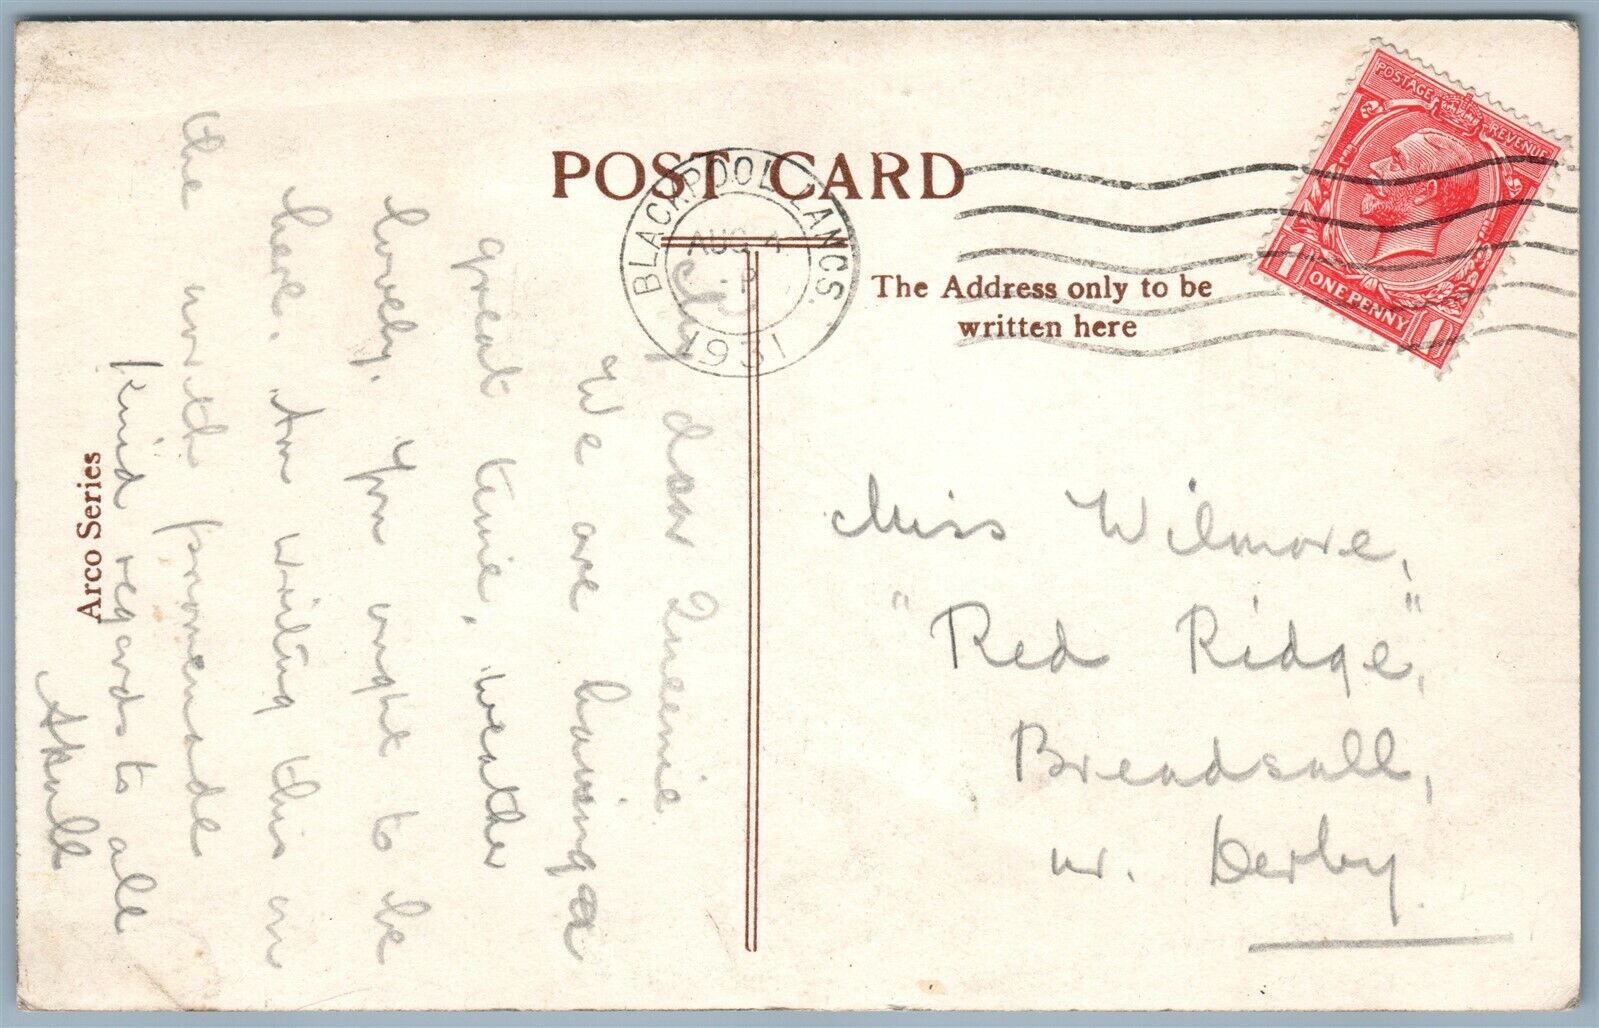 POST CARD
BLACKPOOL LANCS.
AUG 4
P
1931
POSTAGE REVENUE
1 ONE PENNY 1
The Address only to be
written here
Arco Series
My dear Queenie
We are having a
great time, weather
lovely. You ought to be
here. Am writing this on
the north promenade
kind regards to all
Miss Wilmore,
"Red Ridge,"
Breadsall,
nr. Derby.